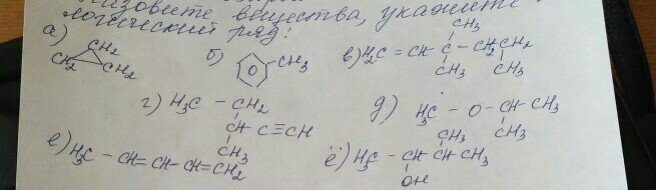 назовите вещества, укажите
логический ряд:
а) CH₂ CH₂ CH₂
б) CH₃
в) H₂C = CH - C - CH₂ CH₂
CH₃
CH₃ CH₃
г) H₃C - CH₂
CH C≡CH
CH₃
д) H₃C - O - CH - CH₃
CH₃
е) H₃C - CH = CH - CH = CH₂
ё) H₃C - CH CH CH₃
CH₃
OH